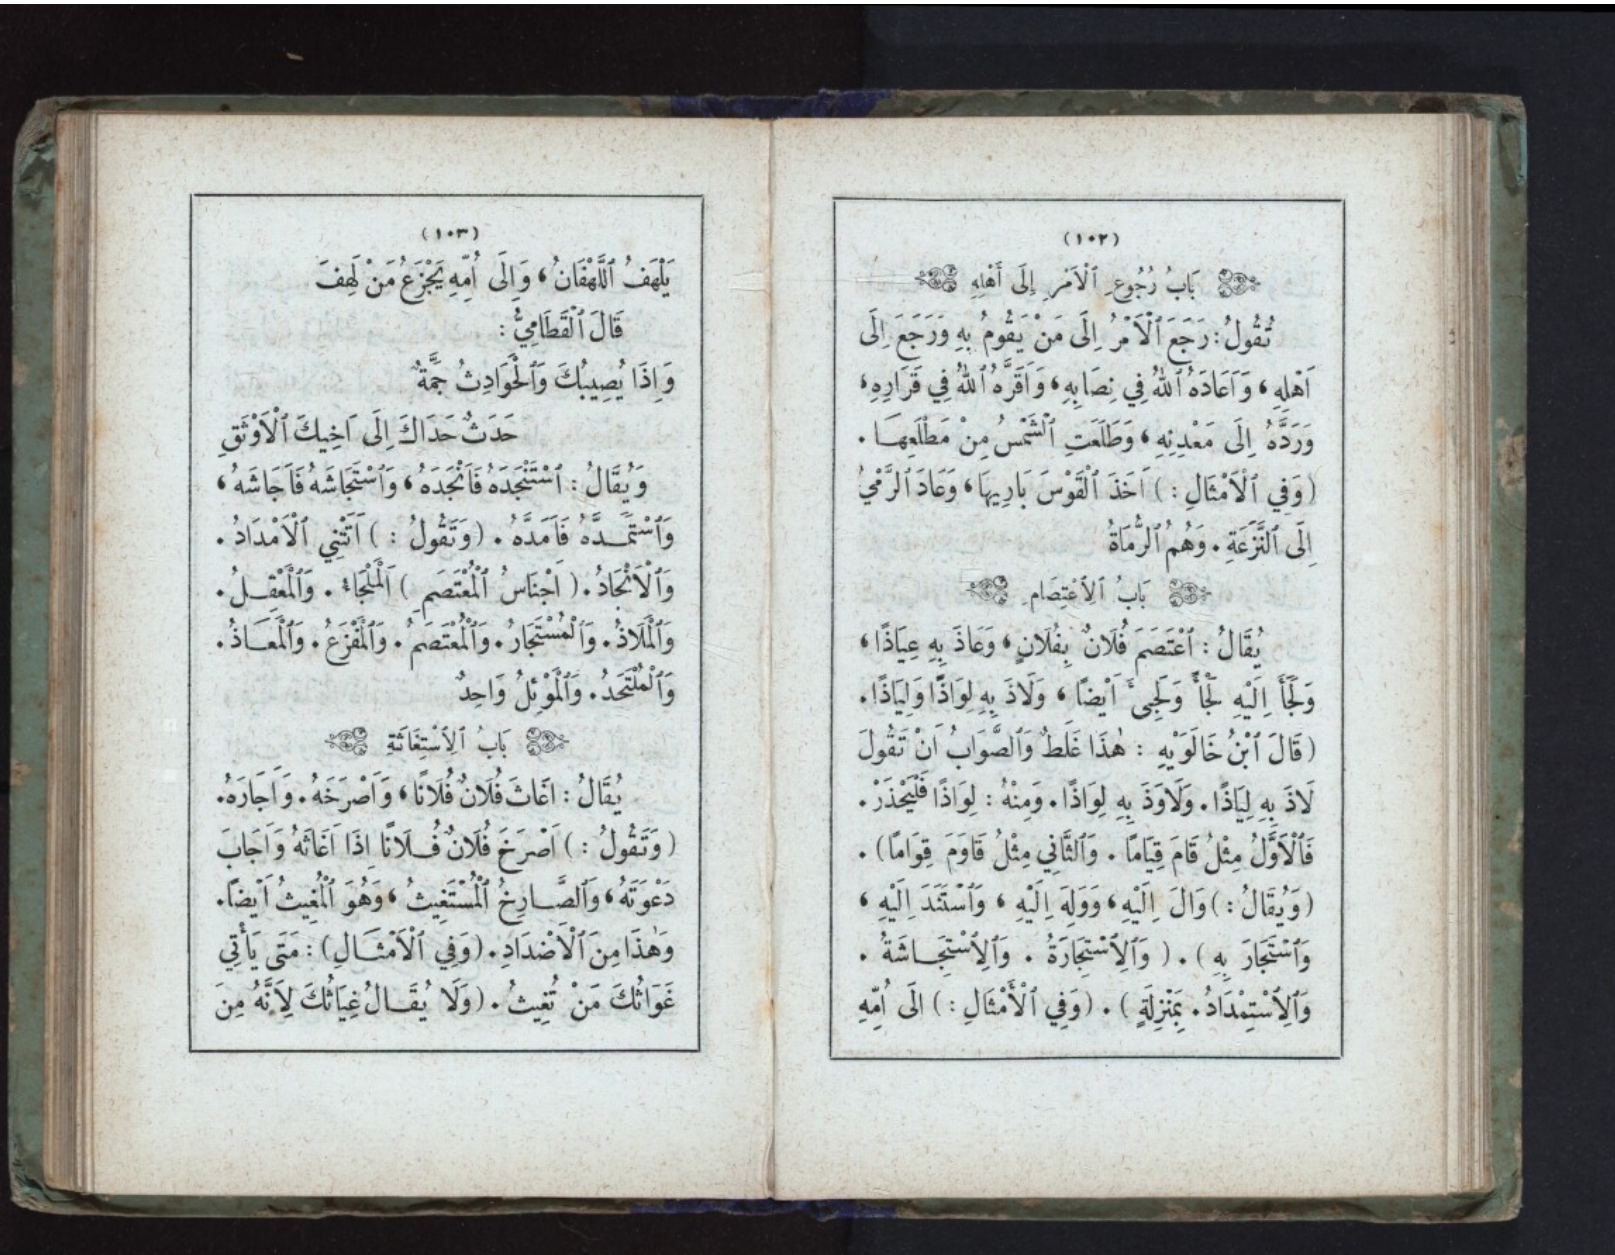 (١٠٢)
بَابُ رُجُوعِ ٱلْأَمْرِ إِلَى أَهْلِهِ
تَقُولُ: رَجَعَ ٱلْاَمْرُ اِلَى مَنْ يَقُومُ بِهِ وَرَجَعَ اِلَى
اَهْلِهِ، وَاَعَادَهُ ٱللهُ فِي نِصَابِهِ، وَاَقَرَّهُ ٱللهُ فِي قَرَارِهِ،
وَرَدَّهُ اِلَى مَعْدِنِهِ، وَطَلَعَتِ ٱلشَّمْسُ مِنْ مَطْلَعِهَا.
(وَفِي ٱلْاَمْثَالِ:) اَخَذَ ٱلْقَوْسَ بَارِيهَا، وَعَادَ ٱلرَّمْيُ
اِلَى ٱلنَّزَعَةِ. وَهُمُ ٱلرُّمَاةُ
بَابُ ٱلِٱعْتِصَامِ
يُقَالُ: ٱعْتَصَمَ فُلَانٌ بِفُلَانٍ، وَعَاذَ بِهِ عِيَاذًا،
وَلَجَأَ اِلَيْهِ لَجْأً وَلَجِئَ اَيْضًا، وَلَاذَ بِهِ لِوَاذًا وَلِيَاذًا.
(قَالَ ٱبْنُ خَالَوَيْهِ: هٰذَا غَلَطٌ وَٱلصَّوَابُ اَنْ تَقُولَ
لَاذَ بِهِ لِيَاذًا. وَلَاوَذَ بِهِ لِوَاذًا. وَمِنْهُ: لِوَاذًا فَلْيَحْذَرْ.
فَٱلْاَوَّلُ مِثْلُ قَامَ قِيَامًا. وَٱلثَّانِي مِثْلُ قَاوَمَ قِوَامًا).
(وَيُقَالُ:) وَالَ اِلَيْهِ، وَوَلِهَ اِلَيْهِ، وَٱسْتَنَدَ اِلَيْهِ،
وَٱسْتَجَارَ بِهِ). (وَٱلِٱسْتِجَارَةُ. وَٱلِٱسْتِجَاشَةُ.
وَٱلِٱسْتِمْدَادُ. بِمَنْزِلَةٍ). (وَفِي ٱلْأَمْثَالِ:) اِلَى اُمِّهِ
(١٠٣)
يَلْهَفُ ٱللَّهْفَانُ، وَاِلَى اُمِّهِ يَجْزَعُ مَنْ لَهِفَ
قَالَ ٱلْقَطَامِيُّ:
وَاِذَا يُصِيبُكَ وَٱلْحَوَادِثُ جَمَّةٌ
حَدَثٌ حَدَاكَ اِلَى اَخِيكَ ٱلْاَوْثَقِ
وَيُقَالُ: ٱسْتَنْجَدَهُ فَاَنْجَدَهُ، وَٱسْتَجَاشَهُ فَاَجَاشَهُ،
وَٱسْتَمَدَّهُ فَاَمَدَّهُ. (وَتَقُولُ:) اَتَتْنِي ٱلْاَمْدَادُ.
وَٱلْاَنْجَادُ. (اَجْنَاسُ ٱلْمُعْتَصَمِ) اَلْمَلْجَاءُ. وَٱلْمَعْقِلُ.
وَٱلْمَلَاذُ. وَٱلْمُسْتَجَارُ. وَٱلْمُعْتَصَمُ. وَٱلْمَفْزَعُ. وَٱلْمَعَاذُ.
وَٱلْمُلْتَحَدُ. وَٱلْمَوْئِلُ وَاحِدٌ
بَابُ ٱلِٱسْتِغَاثَةِ
يُقَالُ: اَغَاثَ فُلَانٌ فُلَانًا، وَاَصْرَخَهُ. وَاَجَارَهُ.
(وَتَقُولُ:) اَصْرَخَ فُلَانٌ فُلَانًا اِذَا اَغَاثَهُ وَاَجَابَ
دَعْوَتَهُ، وَٱلصَّارِخُ ٱلْمُسْتَغِيثُ، وَهُوَ ٱلْمُغِيثُ اَيْضًا.
وَهٰذَا مِنَ ٱلْاَضْدَادِ. (وَفِي ٱلْاَمْثَالِ): مَتَى يَأْتِي
غَوَاثُكَ مَنْ تُغِيثُ. (وَلَا يُقَالُ غِيَاثُكَ لِاَنَّهُ مِنَ